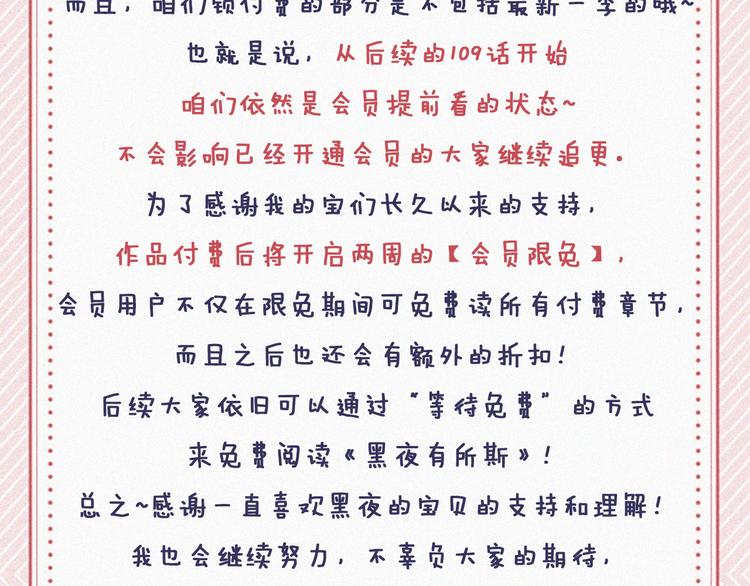 而且，咱们锁付费的部分是不包括最新一季的哦~
也就是说，从后续的109话开始
咱们依然是会员提前看的状态~
不会影响已经开通会员的大家继续追更。
为了感谢我的宝们长久以来的支持，
作品付费后将开启两周的【会员限免】，
会员用户不仅在限免期间可免费读所有付费章节，
而且之后也还会有额外的折扣！
后续大家依旧可以通过“等待免费”的方式
来免费阅读《黑夜有所斯》！
总之~感谢一直喜欢黑夜的宝贝的支持和理解！
我也会继续努力，不辜负大家的期待，